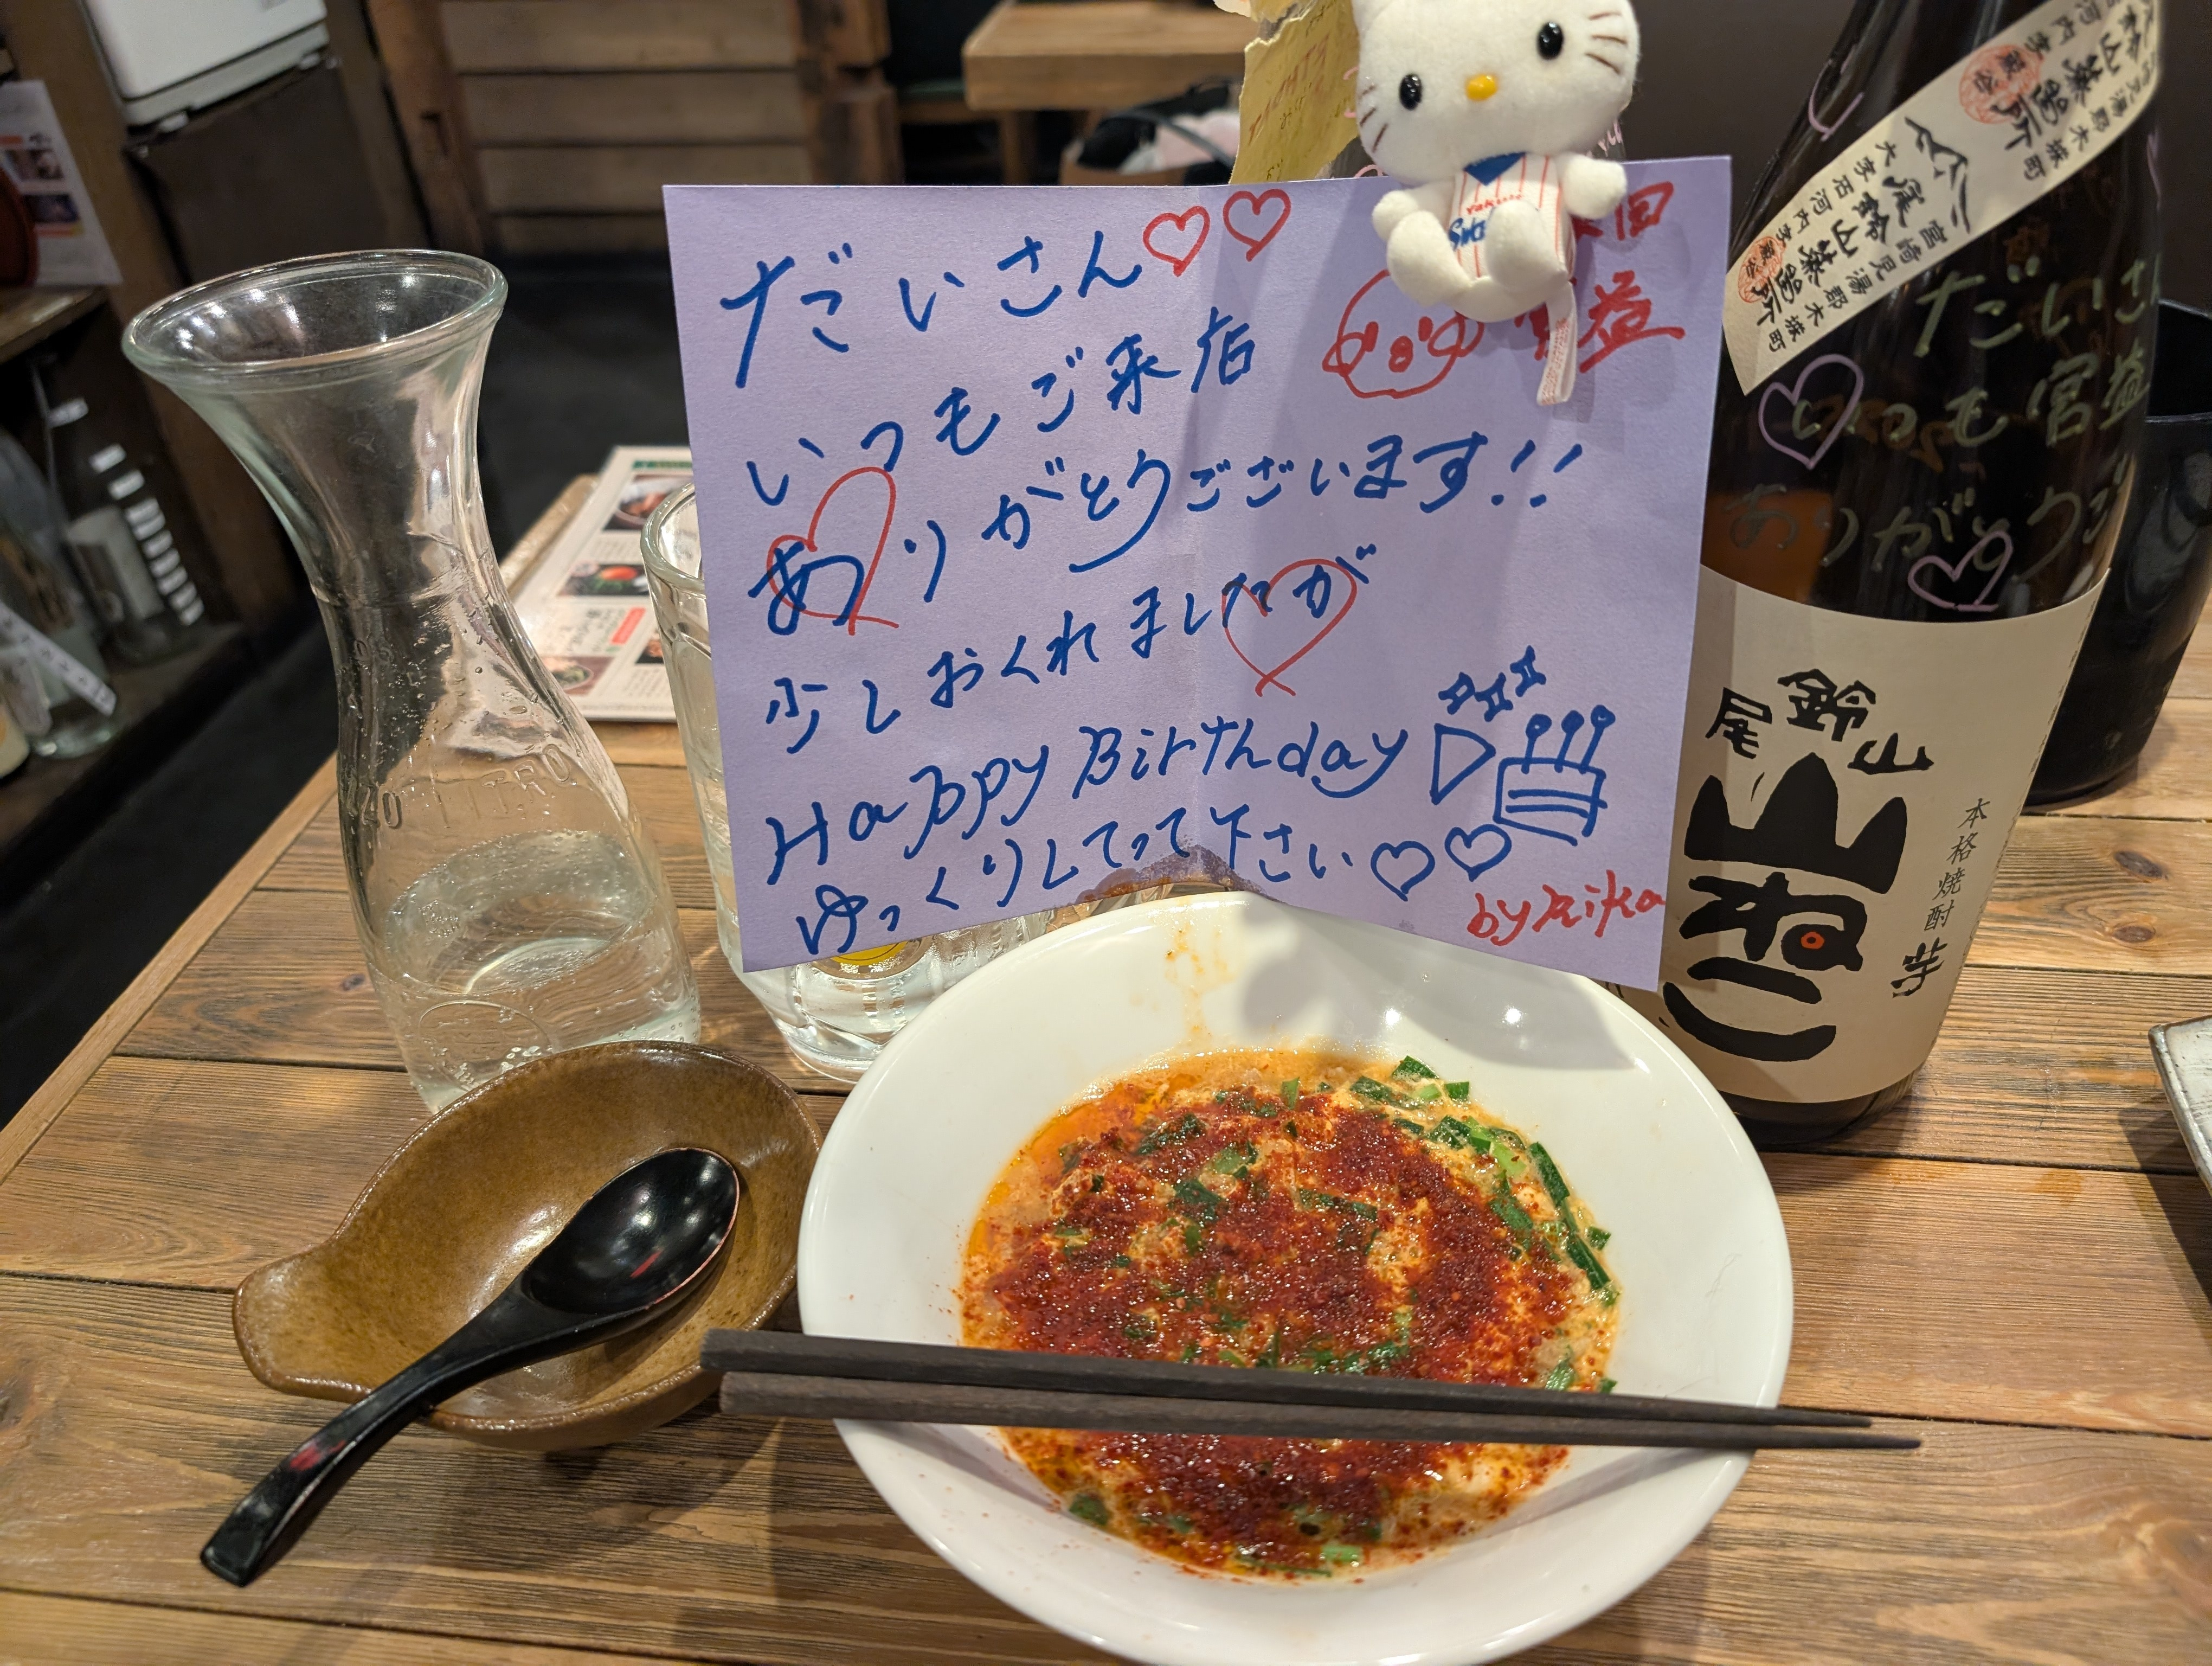 だいさん♡♡
いつもご来店
ありがとうございます!!
少しおくれましたが
Happy Birthday
ゆっくりしてって下さい♡♡
by Rika
益
Yakult
尾鈴山蒸留所
宮崎県児湯郡木城町
大字石河内字
だいさ
いつも宮益
ありがとう
尾鈴山
山ねこ
本格焼酎 芋